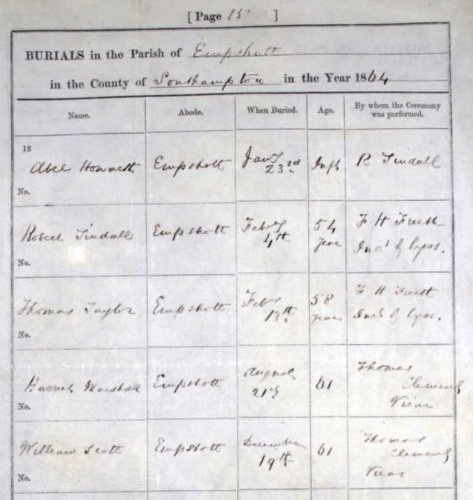 [ Page 15 ]
BURIALS in the Parish of Empshott
in the County of Southampton in the Year 1864
Name. Abode. When Buried. Age. By whom the Ceremony was performed.
18
Abel Howarth Empshott Jany 23rd Inft R Tindall
No.
Robert Tindall Empshott Feby 4th 54 year F H Freeth Incbt of Lyss.
No.
Thomas Taylor Empshott Feby 13th 58 years F H Freeth Incbt of Lyss.
No.
Harriet Marshall Empshott August 21st 61 Thomas Clements Vicar
No.
William Scott Empshott December 19th 61 Thomas Clements Vicar
No.